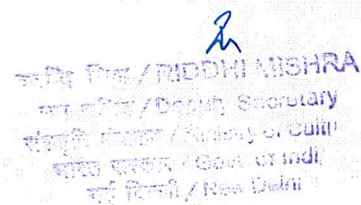 / RIDDHI MISHRA
/ Deputy Secretary
संस्कृति / Ministry of Cultu
भारत सरकार / Govt. of Indi
नई दिल्ली / New Delhi